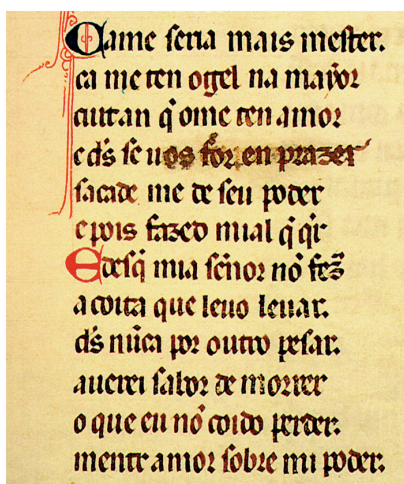 Came seria mais mester.
ca me ten ogel na mayor
cuitan q̃ ome ten amor
e d̃s se uos for, en prazer
sacade me de seu poder
e pois fazed mial q̃ q̃r
E desq̃ mia sẽnor nõ fez̃
a coita que leuo leuar.
d̃s nũca por outro pesar.
auerei sabor de morrer
o que eu nõ coido perder.
mentr amor sobre mi poder.